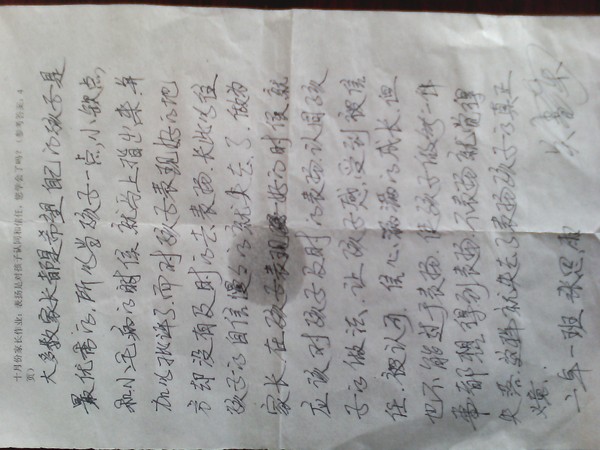 十月份家长作业：表扬是对孩子赞同和信任，您学会了吗？（参考答案：4
页）
大多数家长都是希望自己的孩子是
最优秀的，所以当孩子一点，小缺点，
和小毛病的时候就马上指出来，并
加以批评了，而对孩子表现好的地
方却没有及时的去表扬，长此以往
孩子的自信慢慢的就失去了，做为
家长，在孩子表现好的时候就
应该对孩子及时的表扬，认同孩
子的做法，让孩子感受到被信
任，被认可，信心满满的成长，但
也不能过于表扬，使孩子做每一件
事都想得到表扬，不表扬就觉得
失落，这样就失去了表扬孩子的真正
二年一班